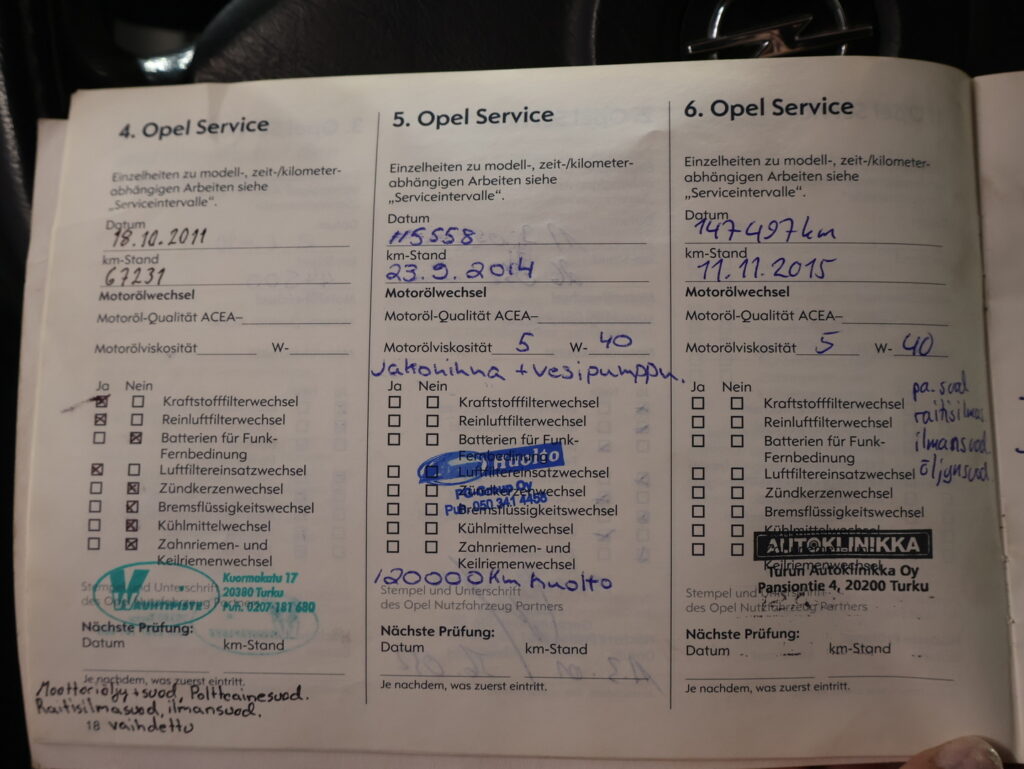 4. Opel Service
Einzelheiten zu modell-, zeit-/kilometer-
abhängigen Arbeiten siehe
„Serviceintervalle“.
Datum
18.10.2011
km-Stand
67231
Motorölwechsel
Motoröl-Qualität ACEA–
Motorölviskosität W-
Ja Nein
Kraftstofffilterwechsel
Reinluftfilterwechsel
Batterien für Funk-
Fernbedinung
Luftfiltereinsatzwechsel
Zündkerzenwechsel
Bremsflüssigkeitswechsel
Kühlmittelwechsel
Zahnriemen- und
Keilriemenwechsel
Kuormakatu 17
20380 Turku
Puh. 0207 181 680
Stempel und Unterschrift
des Opel Nutzfahrzeug Partners
Nächste Prüfung:
Datum km-Stand
Je nachdem, was zuerst eintritt.
Moottoriöljy + suod, Polttoainesuod.
Raitisilmasuod, ilmansuod.
18 vaihdettu
5. Opel Service
Einzelheiten zu modell-, zeit-/kilometer-
abhängigen Arbeiten siehe
„Serviceintervalle“.
Datum
115558
km-Stand
23.9.2014
Motorölwechsel
Motoröl-Qualität ACEA–
Motorölviskosität 5 W- 40
Jakohihna + vesipumppu.
Ja Nein
Kraftstofffilterwechsel
Reinluftfilterwechsel
Batterien für Funk-
Fernbedinung
Huolto
Luftfiltereinsatzwechsel
Zündkerzenwechsel
Puh. 050 341 4456
Bremsflüssigkeitswechsel
Kühlmittelwechsel
Zahnriemen- und
Keilriemenwechsel
120000km huolto
Stempel und Unterschrift
des Opel Nutzfahrzeug Partners
Nächste Prüfung:
Datum km-Stand
Je nachdem, was zuerst eintritt.
6. Opel Service
Einzelheiten zu modell-, zeit-/kilometer-
abhängigen Arbeiten siehe
„Serviceintervalle“.
Datum
147497km
km-Stand
11.11.2015
Motorölwechsel
Motoröl-Qualität ACEA–
Motorölviskosität 5 W- 40
Ja Nein
pa.suod
raitisilmas
ilmansuod
öljynsuod
Kraftstofffilterwechsel
Reinluftfilterwechsel
Batterien für Funk-
Fernbedinung
Luftfiltereinsatzwechsel
Zündkerzenwechsel
Bremsflüssigkeitswechsel
Kühlmittelwechsel
AUTOKLINIKKA
Zahnriemen- und
Keilriemenwechsel
Turun Autoklinikka Oy
Pansiontie 4, 20200 Turku
Stempel und Unterschrift
des Opel Nutzfahrzeug Partners
Nächste Prüfung:
Datum km-Stand
Je nachdem, was zuerst eintritt.